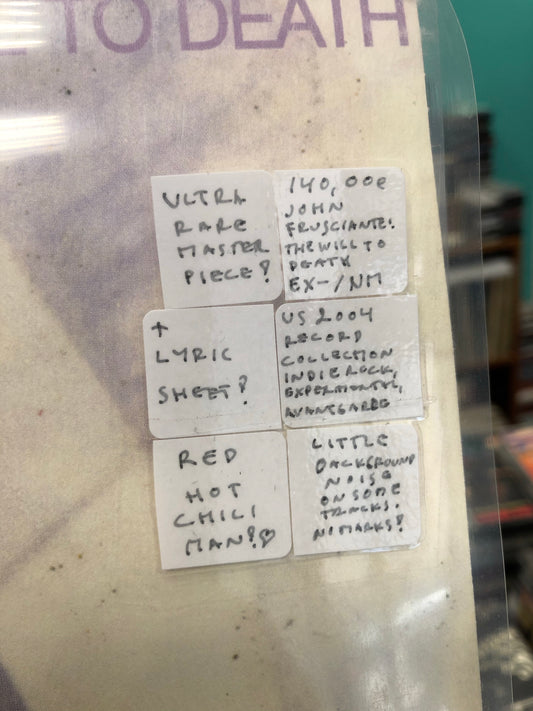 E TO DEATH
ULTRA
RARE
MASTER
PIECE!
140,00€
JOHN
FRUSCIANTE:
THE WILL TO
DEATH
EX-/NM
↑
LYRIC
SHEET!
US 2004
RECORD
COLLECTION
INDIE ROCK,
EXPERIMONTUL,
AVANTGARDE
RED
HOT
CHILI
MAN!♡
LITTLE
BACKGROUND
NOISE
ON SOME
TRACKS.
NO MARKS!